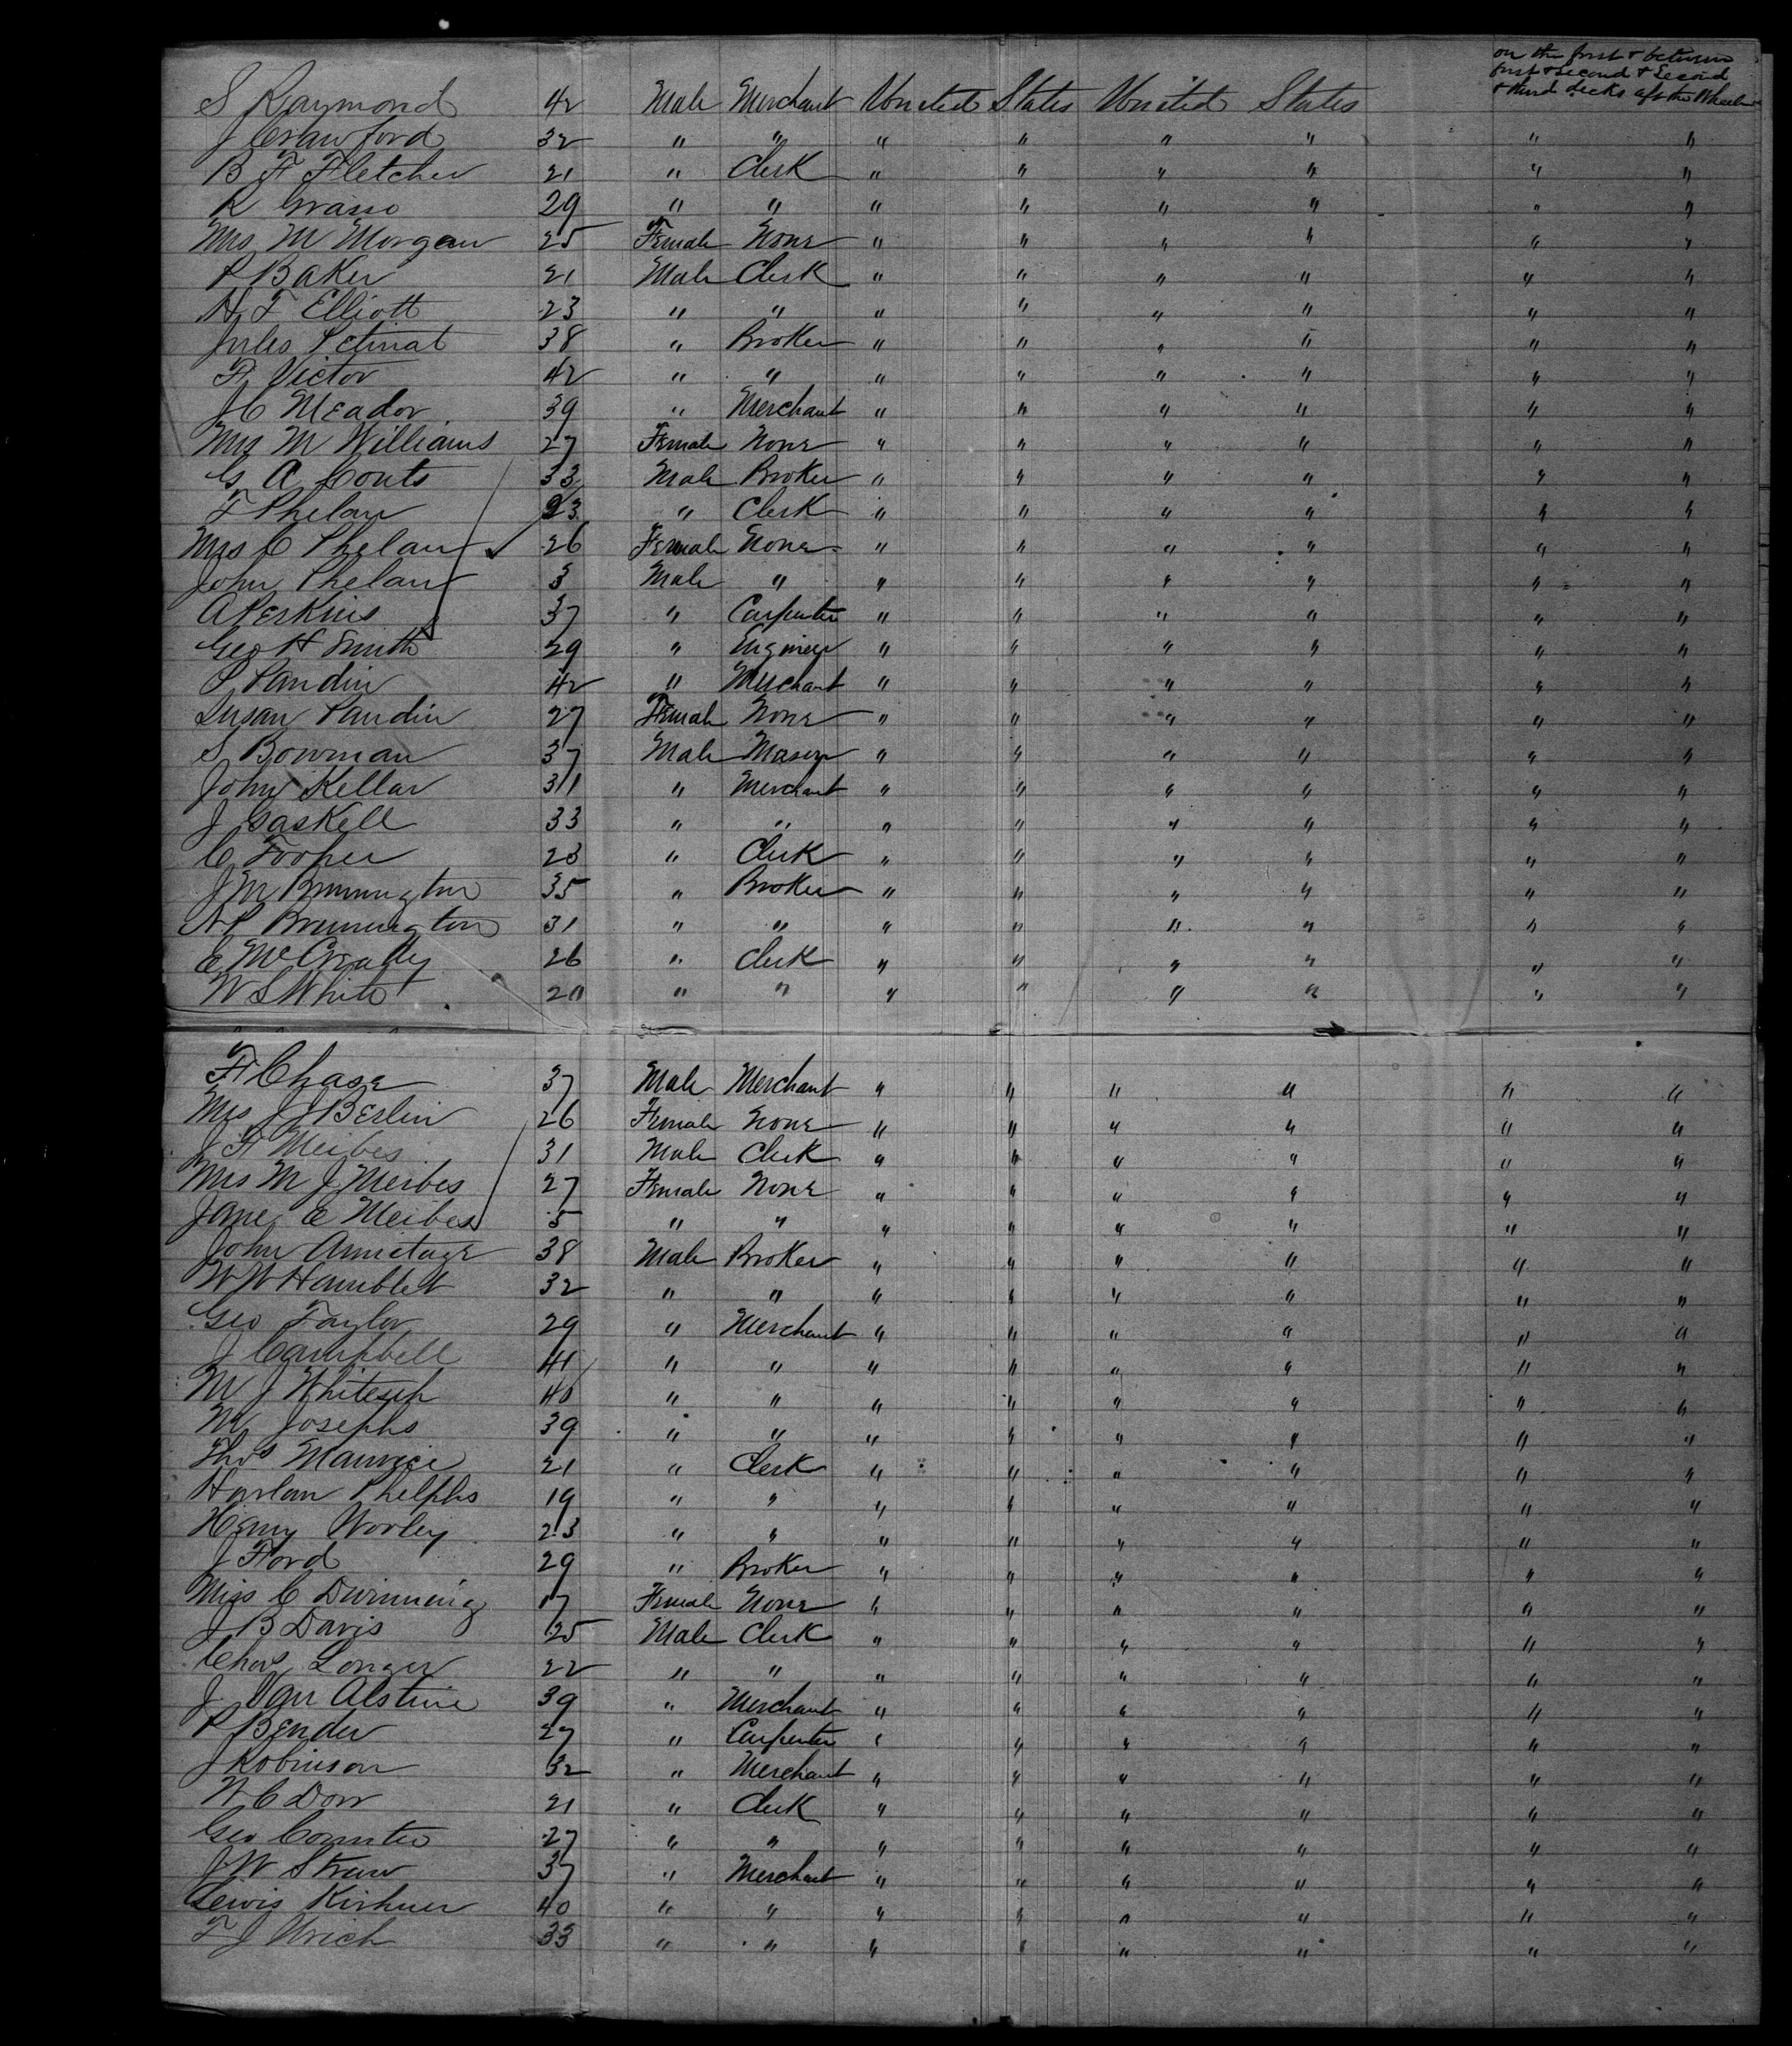 on the first & between
first & second & Second
& third decks aft the Wheel
S Raymond 42 Male Merchant United States United States
J Crawford 32 " " " " " " " "
B F Fletcher 21 " Clerk " " " " " "
R Grasso 29 " " " " " " " "
Mrs M Morgan 25 Female None " " " " " "
P Baker 21 Male Clerk " " " " " "
H F Elliott 23 " " " " " " " "
Jules 38 " Broker " " " " " "
F Victor 42 " " " " " " " "
J C Meador 39 " Merchant " " " " " "
Mrs M Williams 27 Female None " " " " " "
G A Couts 33 Male Broker " " " " " "
F Phelan 23 " Clerk " " " " " "
Mrs C Phelan 26 Female None " " " " " "
John Phelan 3 Male " " " " " " "
A Perkins 37 " Carpenter " " " " " "
Geo H Smith 29 " Engineer " " " " " "
P Pandin 42 " Merchant " " " " " "
Susan Pandin 27 Female None " " " " " "
S Bowman 37 Male Mason " " " " " "
John Kellar 31 " Merchant " " " " " "
J Gaskell 33 " " " " " " " "
C Tooper 23 " Clerk " " " " " "
J M Brunnington 35 " Broker " " " " " "
A P Brunnington 31 " " " " " " " "
E McCready 26 " Clerk " " " " " "
W S White 20 " " " " " " " "
F Chase 37 Male Merchant " " " " " "
Mrs J J Berlin 26 Female None " " " " " "
J F Meibes 31 Male Clerk " " " " " "
Mrs M J Meibes 27 Female None " " " " " "
Jane E Meibes 5 " " " " " " " "
John Armitage 38 Male Broker " " " " " "
W W Hamblet 32 " " " " " " " "
Geo Taylor 29 " Merchant " " " " " "
J Campbell 41 " " " " " " " "
M J 40 " " " " " " " "
M Josephs 39 " " " " " " " "
Thos Maurice 21 " Clerk " " " " " "
Harlan Phelphs 19 " " " " " " " "
Henry Worley 23 " " " " " " " "
J Ford 29 " Broker " " " " " "
Miss C 17 Female None " " " " " "
J B Davis 25 Male Clerk " " " " " "
Chas Longer 22 " " " " " " " "
J Van Alstine 39 " Merchant " " " " " "
P Bender 27 " Carpenter " " " " " "
J Robinson 32 " Merchant " " " " " "
W C Dow 21 " Clerk " " " " " "
Geo Counter 27 " " " " " " " "
J W Straw 37 " Merchant " " " " " "
Lewis Kirhner 40 " " " " " " " "
F J Urich 33 " " " " " " " "